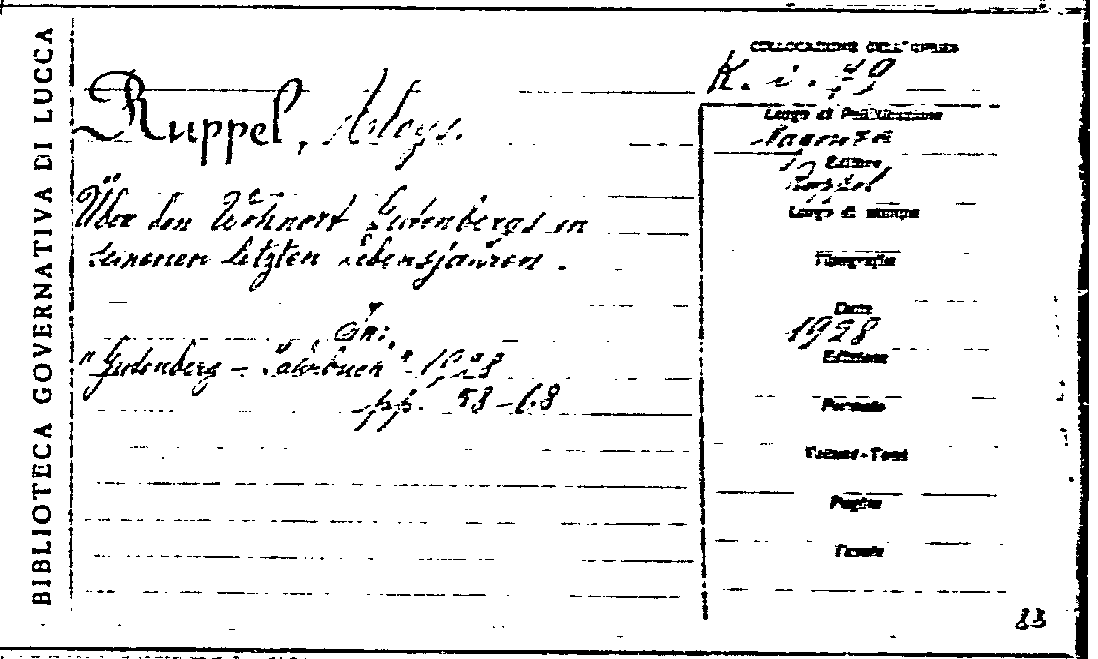 BIBLIOTECA GOVERNATIVA DI LUCCA
Ruppel, Aloys.
Über den Wohnort Gutenbergs in
seinenen letzten Lebensjahren.
In:
"Gutenberg - Jahrbuch" 1928
pp. 58-68
COLLOCAZIONE DELL'OPERA
K. i. 79
Luogo di Pubblicazione
Magonza
Editore
Ruppel
Luogo di stampa
Tipografia
Data
1928
Edizione
Formato
Volumi-Tomi
Pagine
Tavole
83